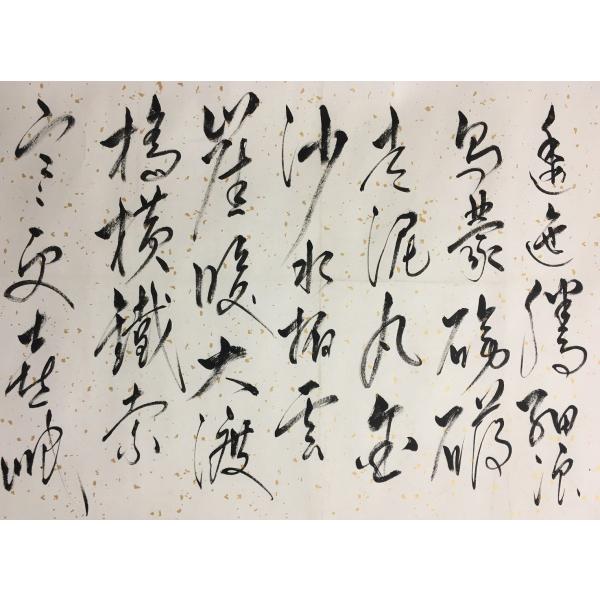 逶迤騰細浪
烏蒙磅礴
走泥丸金
沙水拍雲
崖暖大渡
橋橫鐵索
寒更喜岷